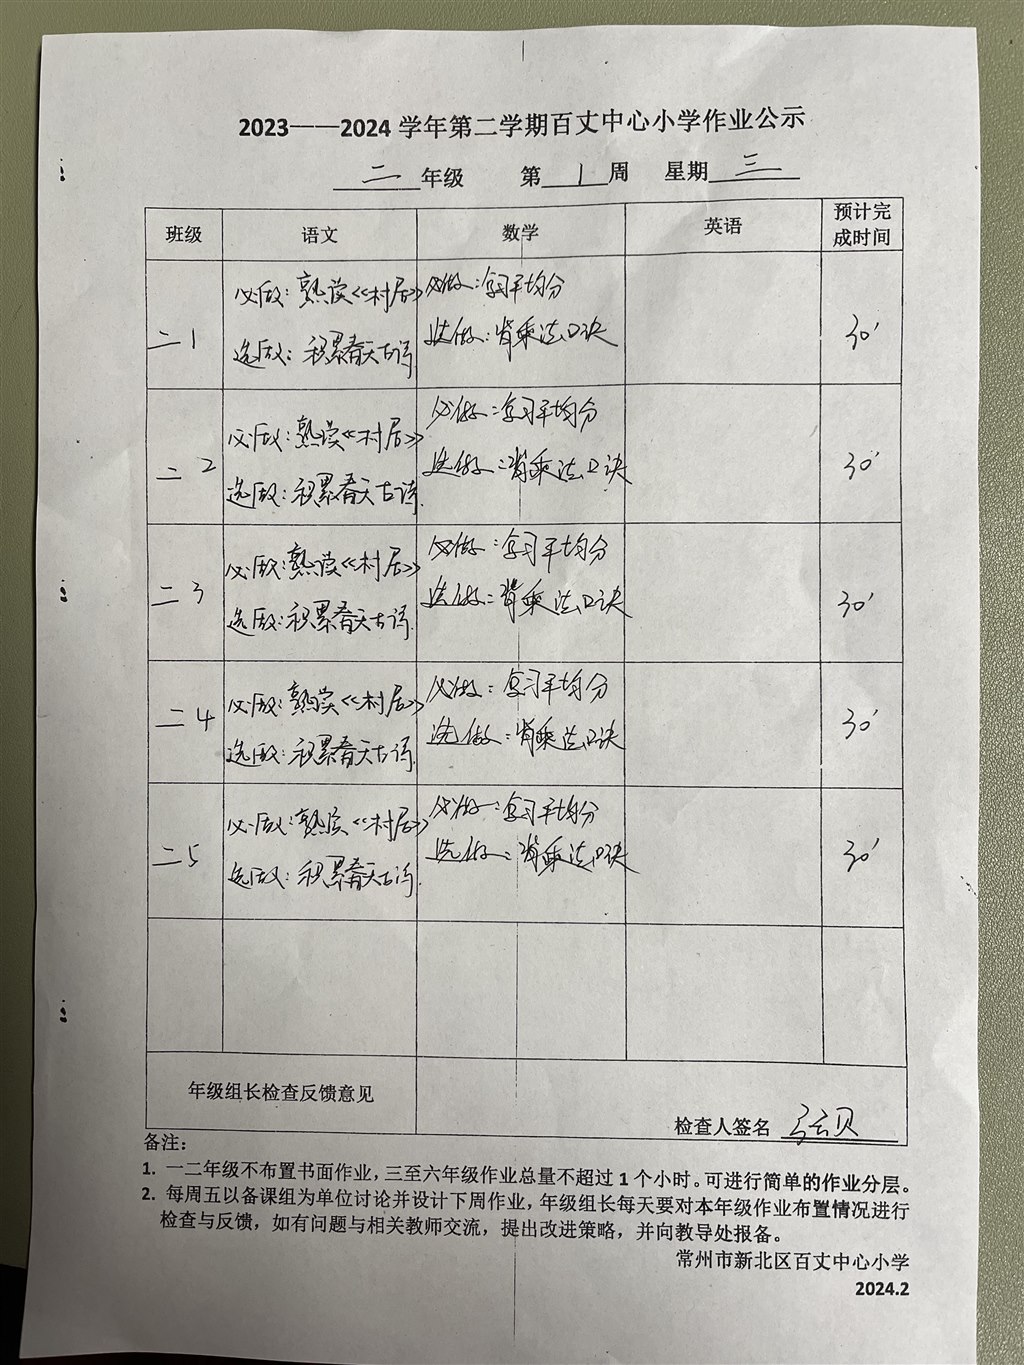 2023——2024 学年第二学期百丈中心小学作业公示
二 年级 第 1 周 星期 三
班级 语文 数学 英语 预计完成时间
二1 必做：熟读《村居》 必做：复习平均分 30'
选做：积累春天古诗 选做：背乘法口诀
二2 必做：熟读《村居》 必做：复习平均分 30'
选做：积累春天古诗. 选做：背乘法口诀
二3 必做：熟读《村居》 必做：复习平均分 30'
选做：积累春天古诗. 选做：背乘法口诀
二4 必做：熟读《村居》 必做：复习平均分 30'
选做：积累春天古诗. 选做：背乘法口诀
二5 必做：熟读《村居》 必做：复习平均分 30'
选做：积累春天古诗. 选做：背乘法口诀
年级组长检查反馈意见
检查人签名
备注：
1. 一二年级不布置书面作业，三至六年级作业总量不超过 1 个小时。可进行简单的作业分层。
2. 每周五以备课组为单位讨论并设计下周作业，年级组长每天要对本年级作业布置情况进行
检查与反馈，如有问题与相关教师交流，提出改进策略，并向教导处报备。
常州市新北区百丈中心小学
2024.2